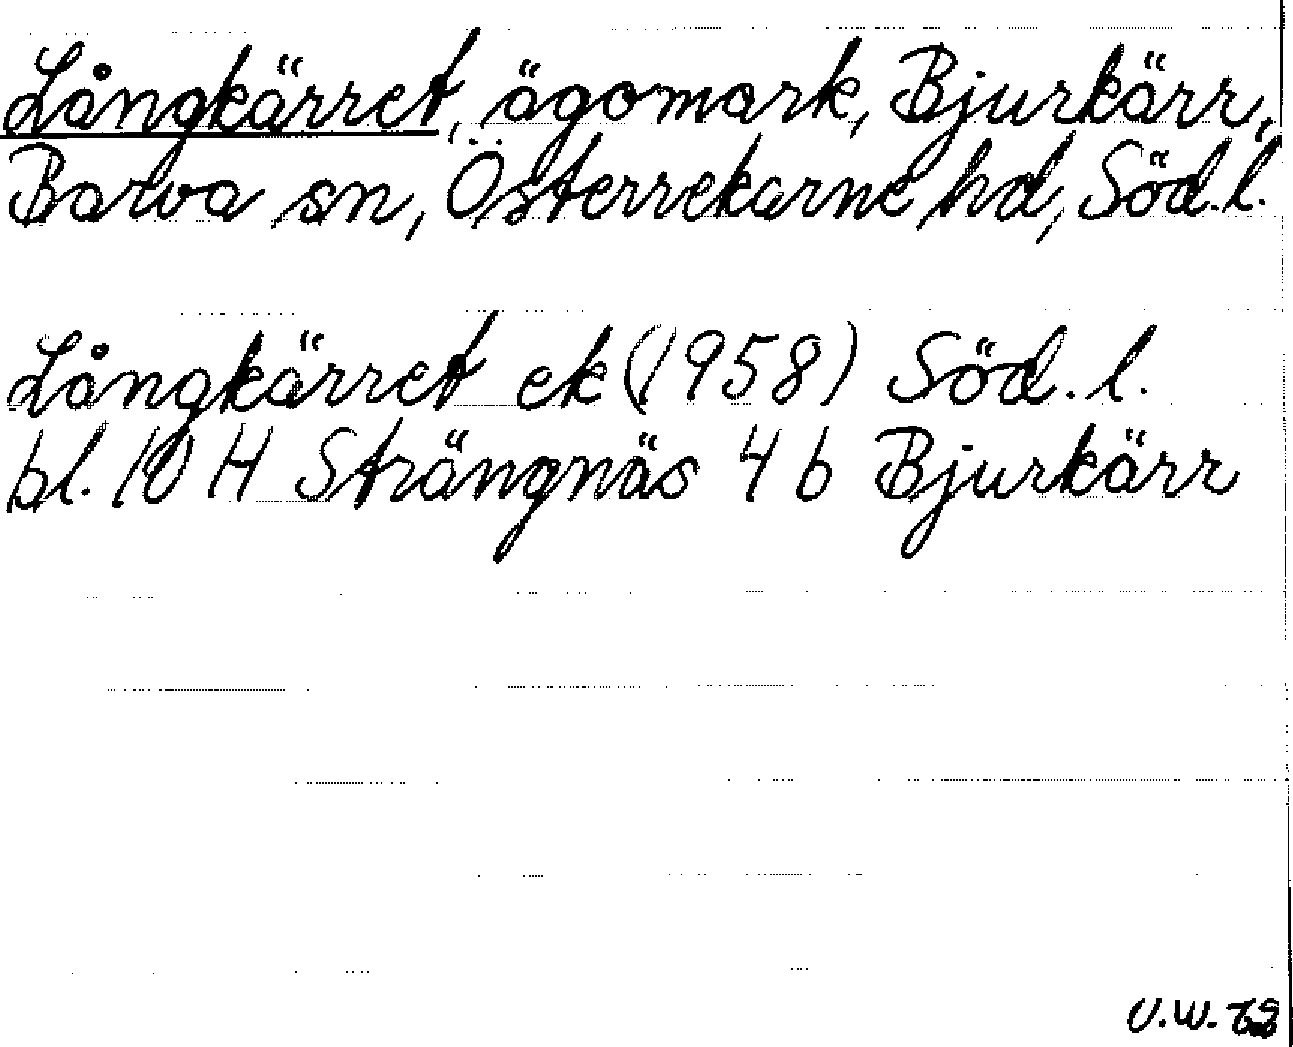 Långkärret, ägomark, Bjurkärr,
Barva sn, Österrekarne hd, Söd.l.
Långkärret ek (1958) Söd. l.
bl. 10 H Strängnäs 4 b Bjurkärr
U.W.